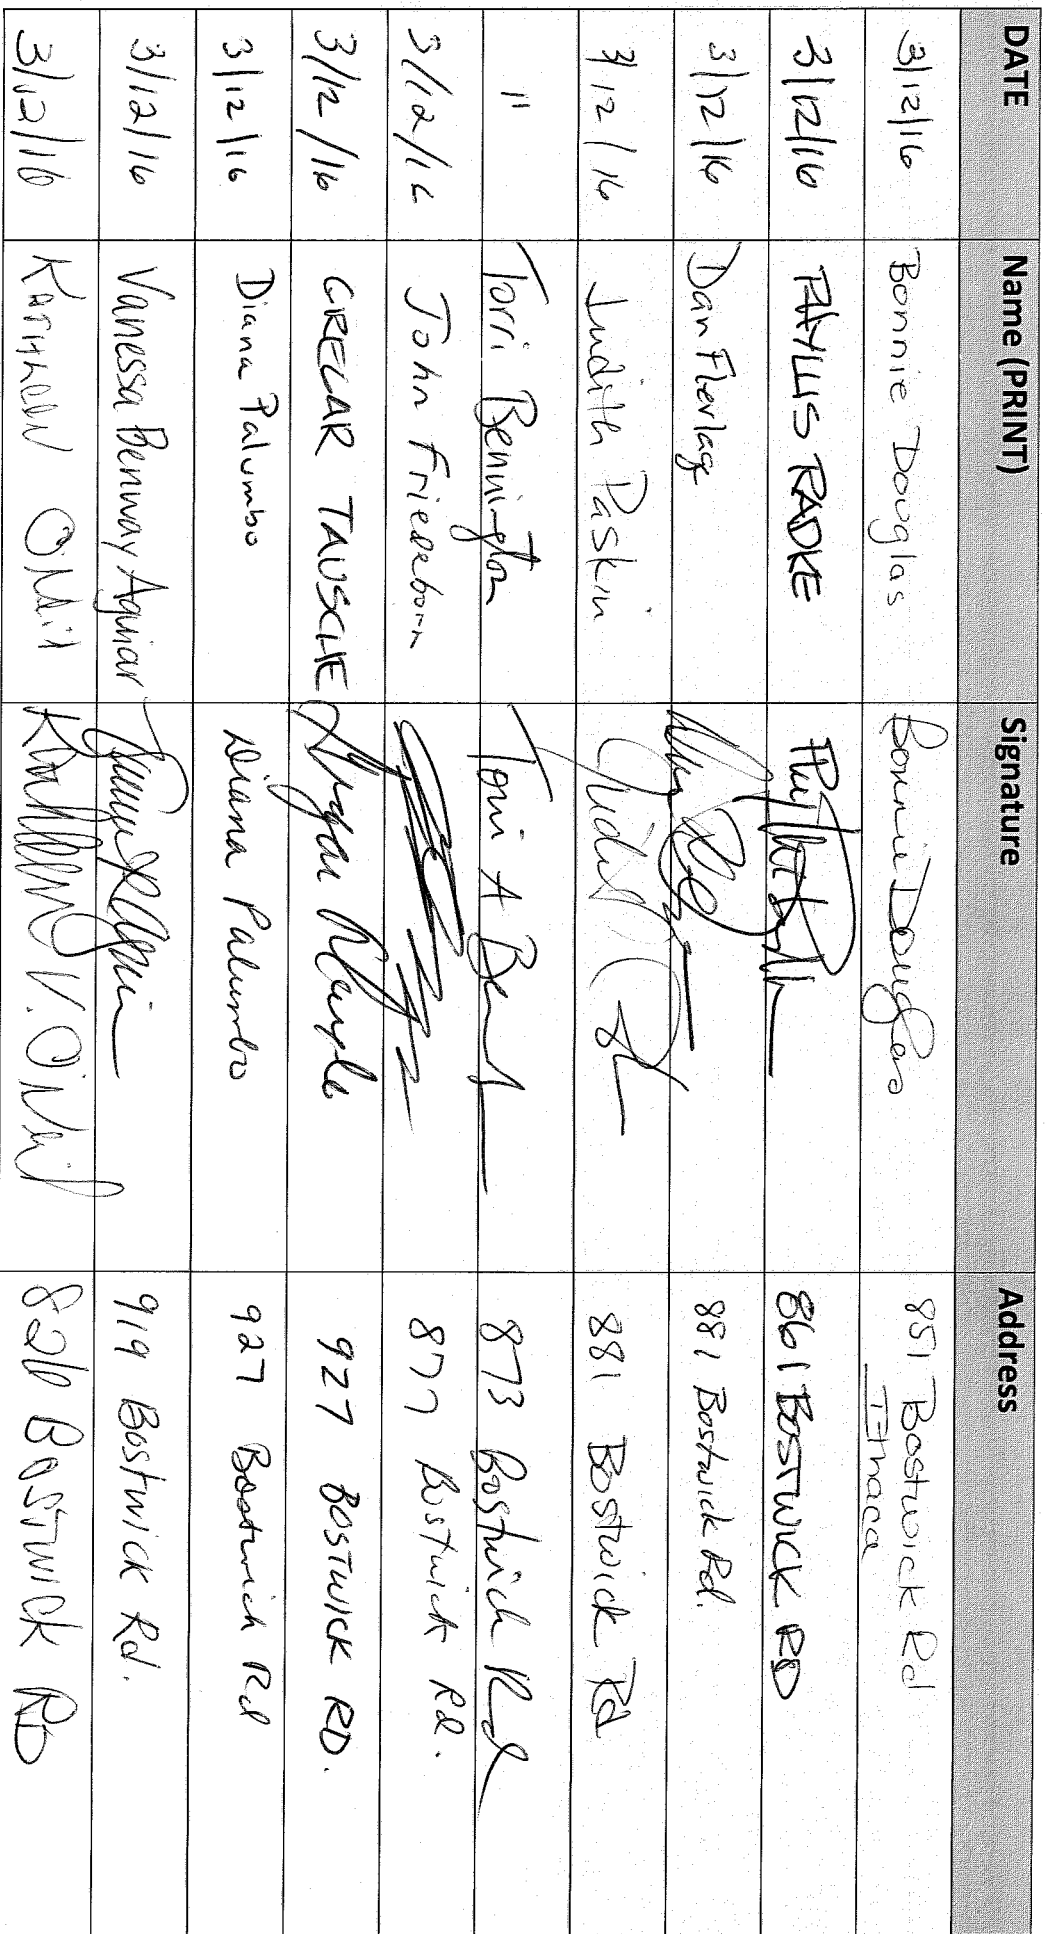 DATE Name (PRINT) Signature Address
3/12/16 Bonnie Douglas Bonnie Douglas 851 Bostwick Rd
Ithaca
3/12/16 PHYLLIS RADKE 861 BOSTWICK RD
3/12/16 Dan Flerlage 881 Bostwick Rd.
3/12/16 Judith Paskin 881 Bostwick Rd
" Torri Bennington Torri A 873 Bostwick Rd
3/12/16 John Friedeborn 877 Bostwick Rd.
3/12/16 GREGAR TAUSCHE 927 BOSTWICK RD.
3/12/16 Diana Palumbo Diana Palumbo 927 Bostwick Rd
3/12/16 Vanessa Benway Aguiar 919 Bostwick Rd.
3/12/16 826 BOSTWICK RD